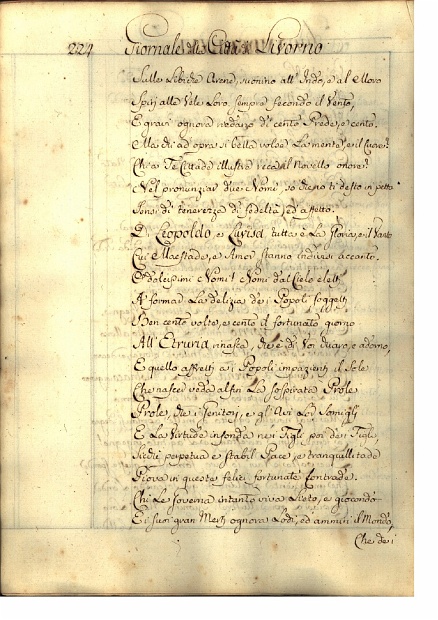 224 Giornale di Città Livorno
Sulle Libiche Arene, suonino all'Indo, e al Moro
Spiri alle Vele Loro sempre secondo il Vento,
E gravi ognora redano di cento Prede, e cento.
Ma chi ad opra sì bella volse La mente, e il Cuore?
Chi a Te Cittade illustre reca il Novello onore?
Nel pronunziar due Nomi io desto in petto
Sensi di tenerezza di fedeltà, ed affetto.
Di Leopoldo, e Luvisa tutta è La gloria, e il Vanto
Cui Maestade, e Amor stanno indivisi accanto.
O dolcissimi Nomi! Nomi dal Cielo eletti
A formar La delizia dei Popoli soggetti
Ben cento volte, e cento il fortunato giorno
All'Etruria rinasca, di Voi adorno,
E quello affretti ai Popoli impazienti il Sole
Che nascer veda alfin La sospirata Prole
Prole, che i Genitori, e gl'Avi Lor somigli
E La Virtude infonda nei Figli poi dei Figli,
perpetua e stabil Pace, e tranquillitade
Piova in queste felici fortunate Contrade.
Chi Le Governa intanto viva Lieto, e giocondo
E i suoi gran Merti ognora Lodi, ed ammiri il Mondo,
Che dei